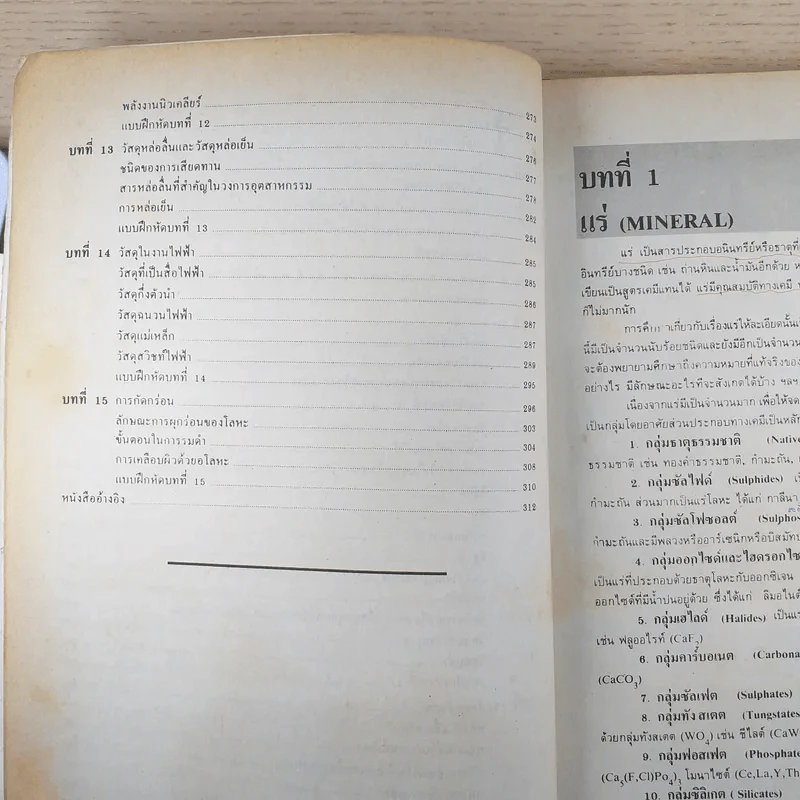 พลังงานนิวเคลียร์ 273
แบบฝึกหัดบทที่ 12 274
บทที่ 13 วัสดุหล่อลื่นและวัสดุหล่อเย็น 276
ชนิดของการเสียดทาน 277
สารหล่อลื่นที่สำคัญในวงการอุตสาหกรรม 278
การหล่อเย็น 282
แบบฝึกหัดบทที่ 13 284
บทที่ 14 วัสดุในงานไฟฟ้า 285
วัสดุที่เป็นสื่อไฟฟ้า 285
วัสดุกึ่งตัวนำ 286
วัสดุฉนวนไฟฟ้า 287
วัสดุแม่เหล็ก 287
วัสดุสวิชท์ไฟฟ้า 289
แบบฝึกหัดบทที่ 14 295
บทที่ 15 การกัดกร่อน 296
ลักษณะการผุกร่อนของโลหะ 303
ขั้นตอนในการรมดำ 304
การเคลือบผิวด้วยอโลหะ 308
แบบฝึกหัดบทที่ 15 310
หนังสืออ้างอิง 312
บทที่ 1
แร่ (MINERAL)
แร่ เป็นสารประกอบอนินทรีย์หรือธาตุที่
อินทรีย์บางชนิด เช่น ถ่านหินและน้ำมันอีกด้วย
เขียนเป็นสูตรเคมีแทนได้ แร่มีคุณสมบัติทางเคมี
ก็ไม่มากนัก
การศึกษาเกี่ยวกับเรื่องแร่ให้ละเอียดนั้น
นี้มีเป็นจำนวนนับร้อยชนิดและยังมีอีกเป็นจำนวน
จะต้องพยายามศึกษาถึงความหมายที่แท้จริงของ
อย่างไร มีลักษณะอะไรที่จะสังเกตได้บ้าง ฯลฯ
เนื่องจากแร่มีเป็นจำนวนมาก เพื่อให้จด
เป็นกลุ่มโดยอาศัยส่วนประกอบทางเคมีเป็นหลัก
1. กลุ่มธาตุธรรมชาติ (Native
ธรรมชาติ เช่น ทองคำธรรมชาติ, กำมะถัน,
2. กลุ่มซัลไฟด์ (Sulphides)
กำมะถัน ส่วนมากเป็นแร่โลหะ ได้แก่ กาลีนา
3. กลุ่มซัลโฟซอลต์ (Sulphos
กำมะถันและมีพลวงหรืออาร์เซนิกหรือบิสมัท
4. กลุ่มออกไซด์และไฮดรอกไซ
เป็นแร่ที่ประกอบด้วยธาตุโลหะกับออกซิเจน
ออกไซด์ที่มีน้ำปนอยู่ด้วย ซึ่งได้แก่ ลิมอไนต์
5. กลุ่มเฮไลด์ (Halides) เป็นแร่
เช่น ฟลูออไรท์ (CaF₂)
6. กลุ่มคาร์บอเนต (Carbona
(CaCO₃)
7. กลุ่มซัลเฟต (Sulphates)
8. กลุ่มทังสเตต (Tungstates
ด้วยกลุ่มทังสเตต (WO₄) เช่น ชีไลต์ (CaW
9. กลุ่มฟอสเฟต (Phosphate
(Ca₅(F,Cl)Po₄)₃ โมนาไซต์ (Ce,La,Y,Th
10. กลุ่มซิลิเกต (Silicates)